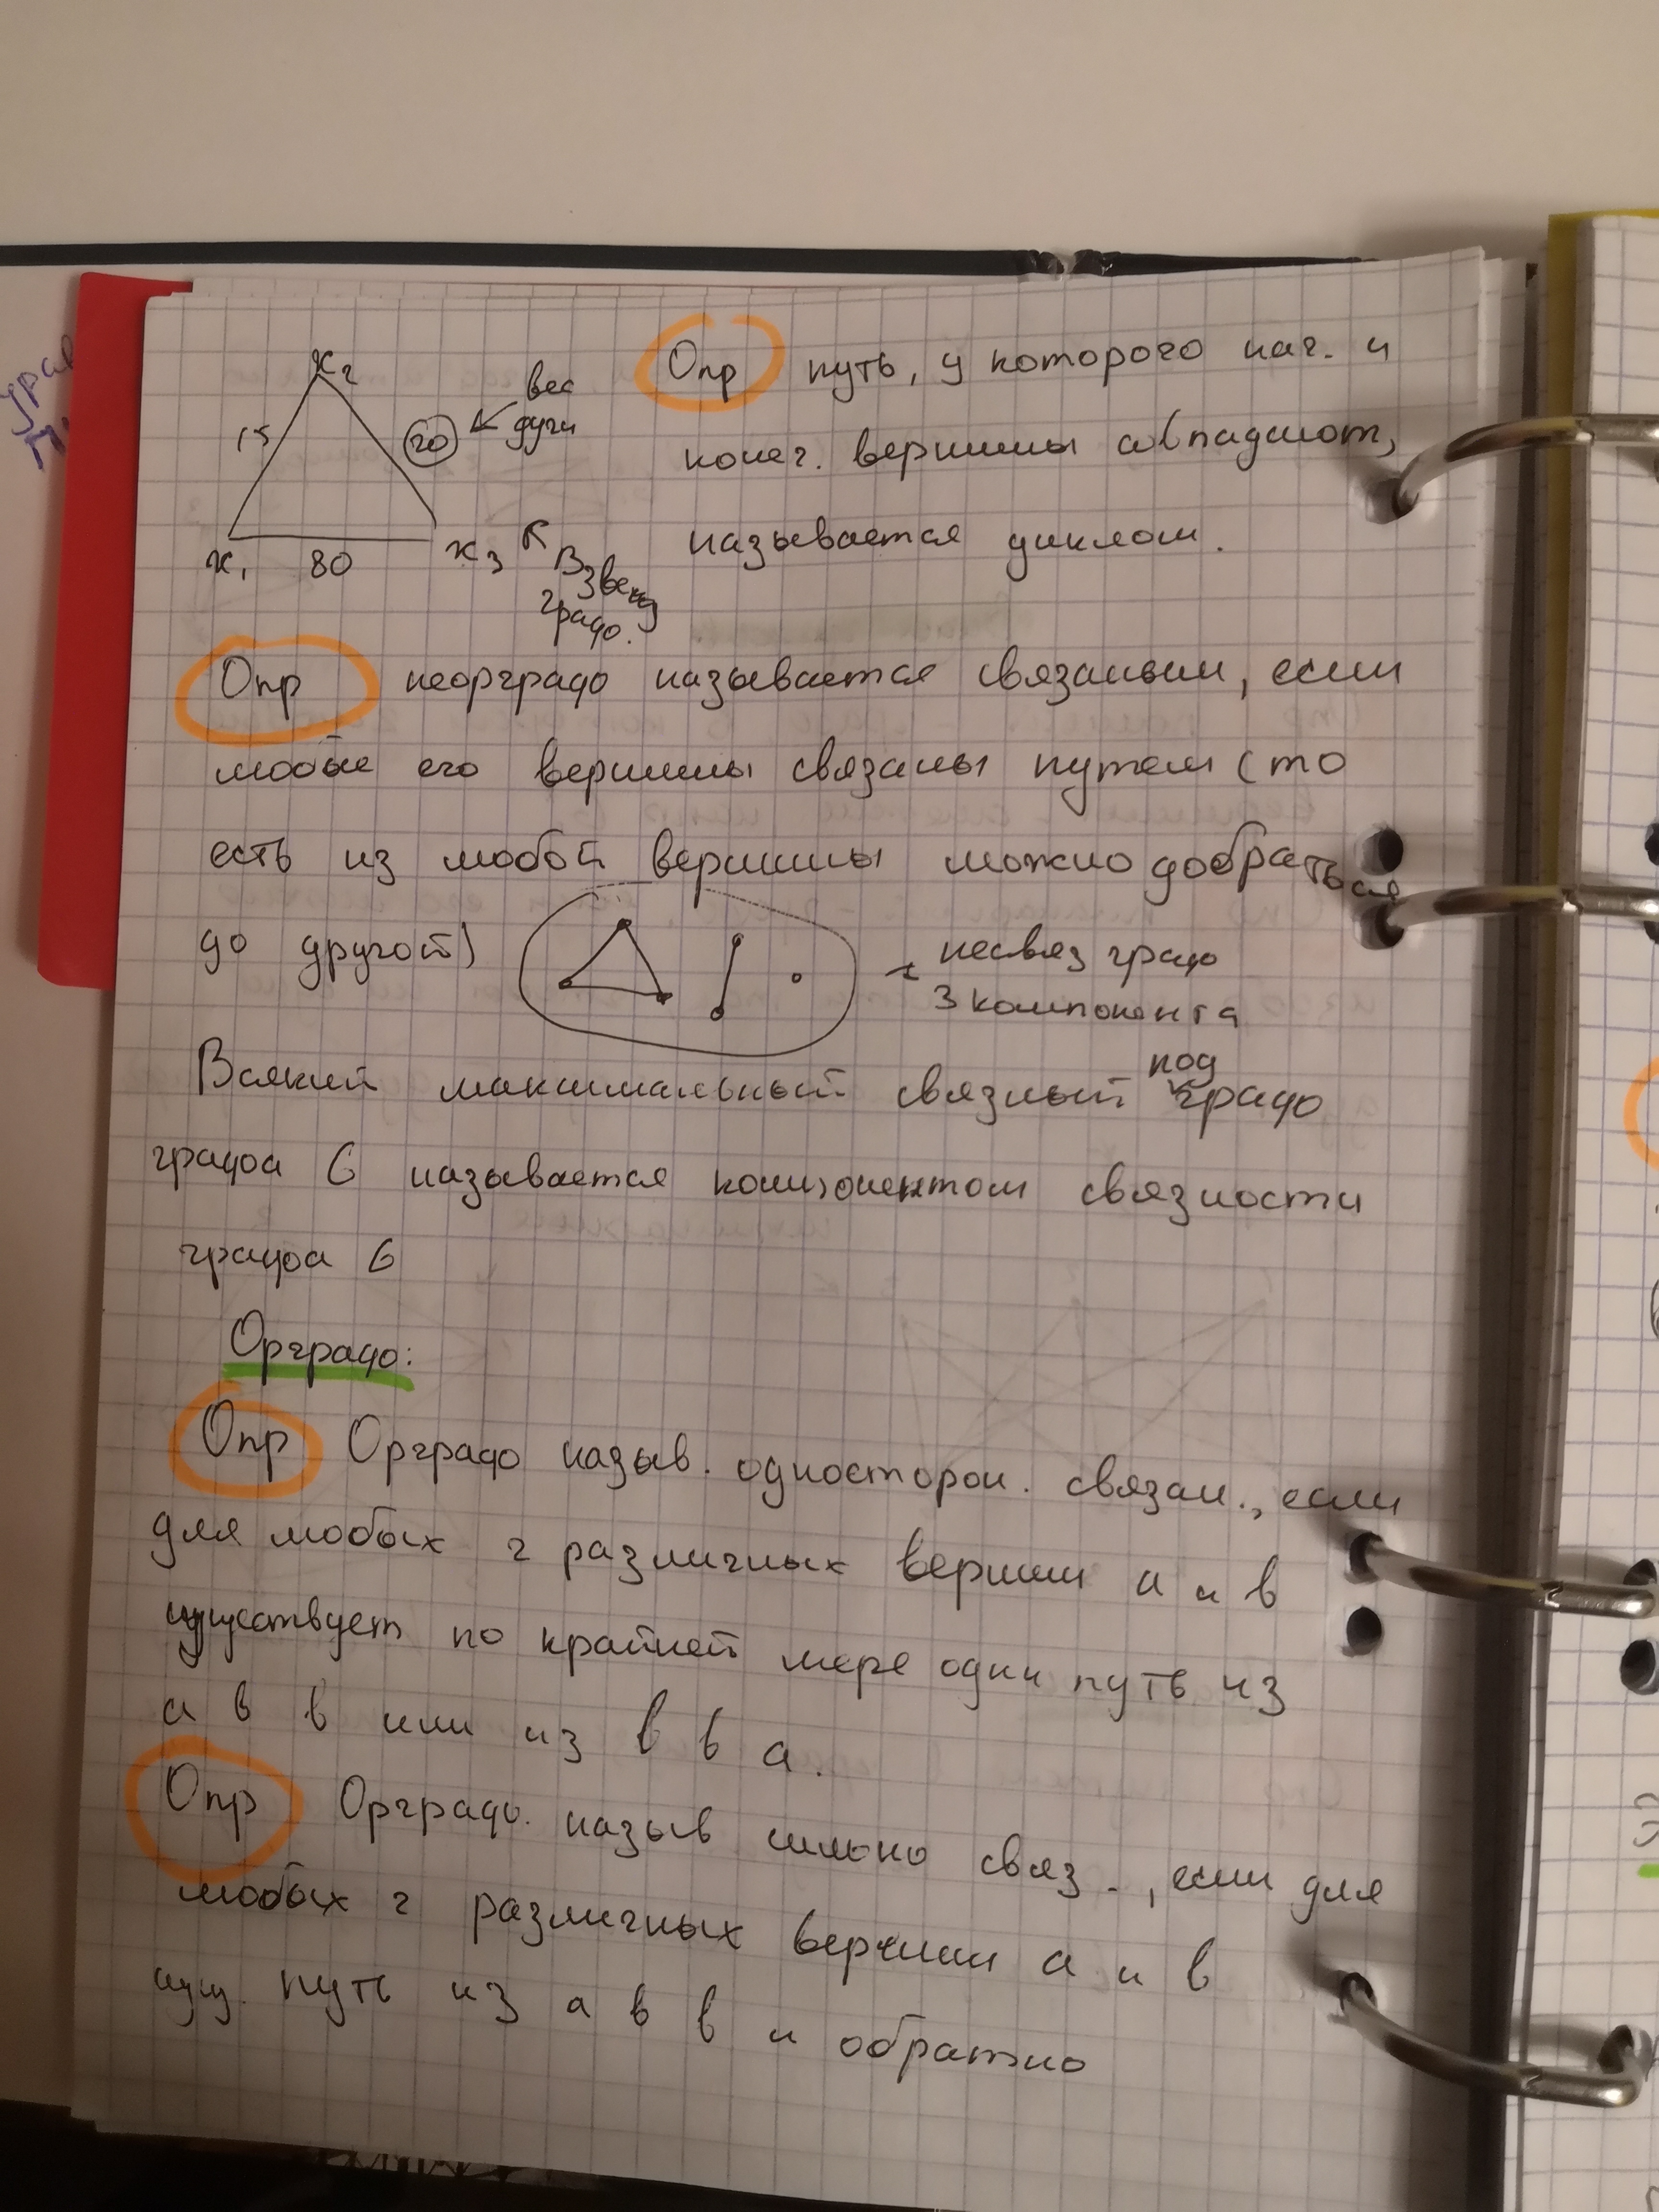 x2
15
20
вес
дуги
x1 80 x3
Взвеш
граф.
Опр путь, у которого нач. и
конеч. вершины совпадают,
называется циклом.
Опр неорграф называется связаным, если
любые его вершины связаны путем (то
есть из любой вершины можно добраться
до другой)
несвяз граф
3 компонента
Всякий максимальный связный подграф
графа G называется компонентом связности
графа G
Орграф:
Опр Орграф назыв. односторон. связан., если
для любых 2 различных вершин a и b
существует по крайней мере один путь из
a в b или из b в a.
Опр Орграф. назыв сильно связ., если для
любых 2 различных вершин a и b
сущ. путь из a в b и обратно